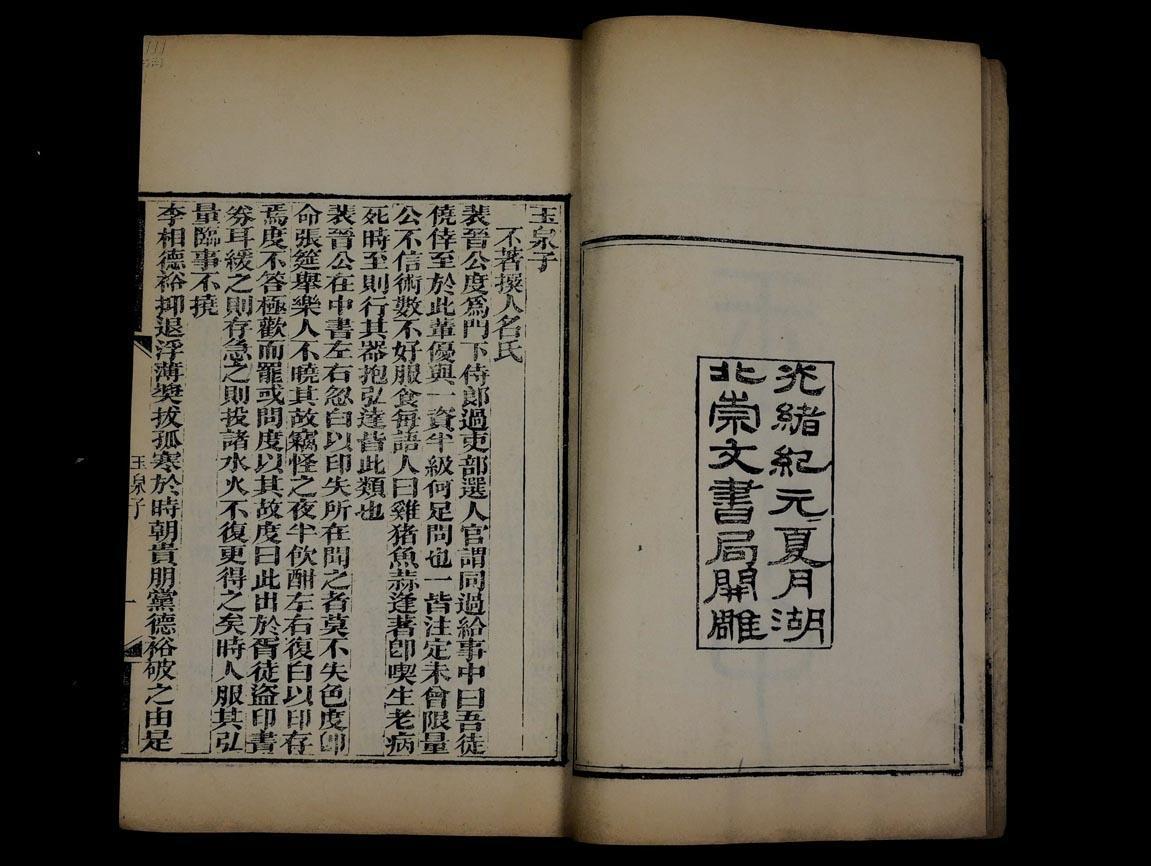 光緒紀元夏月湖
北崇文書局開雕
玉泉子
不著撰人名氏
裴晉公度爲門下侍郎過吏部選人官謂同過給事中曰吾徒
僥倖至於此輩優與一資半級何足問也一皆注定未曾限量
公不信術數不好服食每語人曰雞猪魚蒜逢著卽喫生老病
死時至則行其器抱弘達皆此類也
裴晉公在中書左右忽白以印失所在聞之者莫不失色度卽
命張筵舉樂人不曉其故竊怪之夜半飲酣左右復白以印存
焉度不答極歡而罷或問度以其故度曰此出於胥徒盜印書
券耳緩之則存急之則投諸水火不復更得之矣時人服其弘
量臨事不撓
李相德裕抑退浮薄奬拔孤寒於時朝貴朋黨德裕破之由是
玉泉子
一